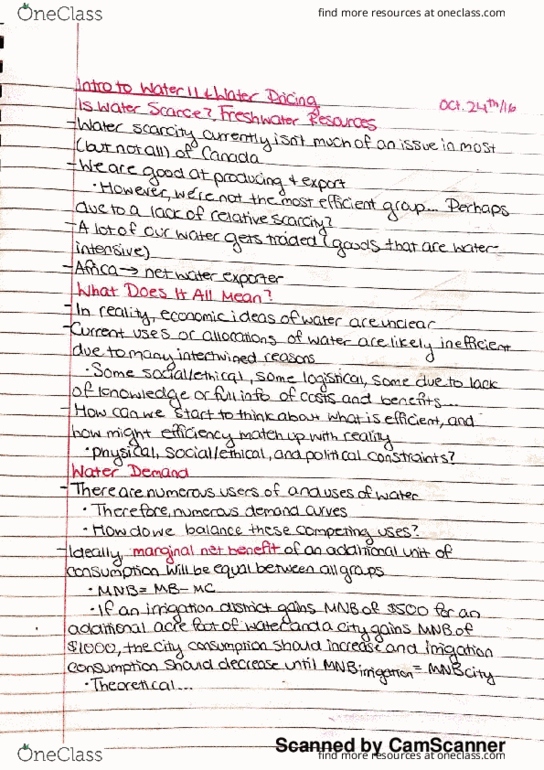 OneClass
find more resources at oneclass.com
Intro to Water II & Water Pricing
Oct. 24th/16
Is Water Scarce? Freshwater Resources
- Water scarcity currently isn't much of an issue in most
(but not all) of Canada
- We are good at producing + export
• However, we're not the most efficient group... Perhaps
due to a lack of relative scarcity?
- A lot of our water gets traded (goods that are water-
intensive)
- Africa → net water exporter
What Does It All Mean?
- In reality, economic ideas of water are unclear
- Current uses or allocations of water are likely inefficient
due to many intertwined reasons
• Some social/ethical, some logistical, some due to lack
of knowledge or full info of costs and benefits...
- How can we start to think about what is efficient, and
how might efficiency match up with reality
• Physical, social/ethical, and political constraints?
Water Demand
- There are numerous users of and uses of water
• Therefore, numerous demand curves
• How do we balance these competing uses?
- Ideally, marginal net benefit of an additional unit of
consumption will be equal between all groups
• MNB = MB - MC
• If an irrigation district gains MNB of $500 for an
additional acre foot of water and a city gains MNB of
$1000, the city consumption should increase and irrigation
consumption should decrease until MNB irrigation = MNB city
• Theoretical...
Scanned by CamScanner
OneClass
find more resources at oneclass.com